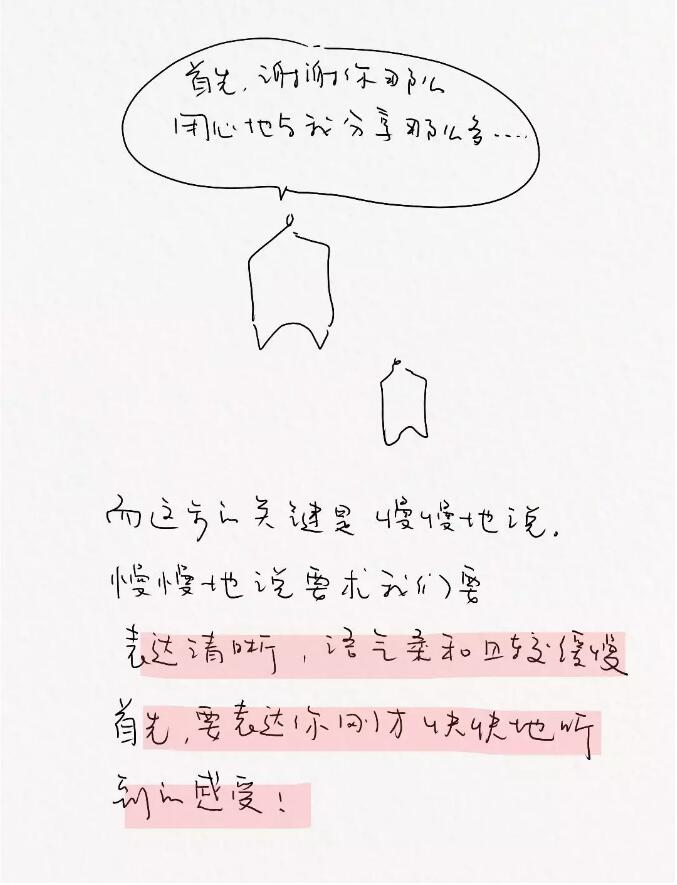 首先，谢谢你那么
用心地与我分享那么多……
而这步的关键是慢慢地说.
慢慢地说要求我们要
表达清晰，语气柔和且较缓慢
首先，要表达你刚才快快地听
到的感受！